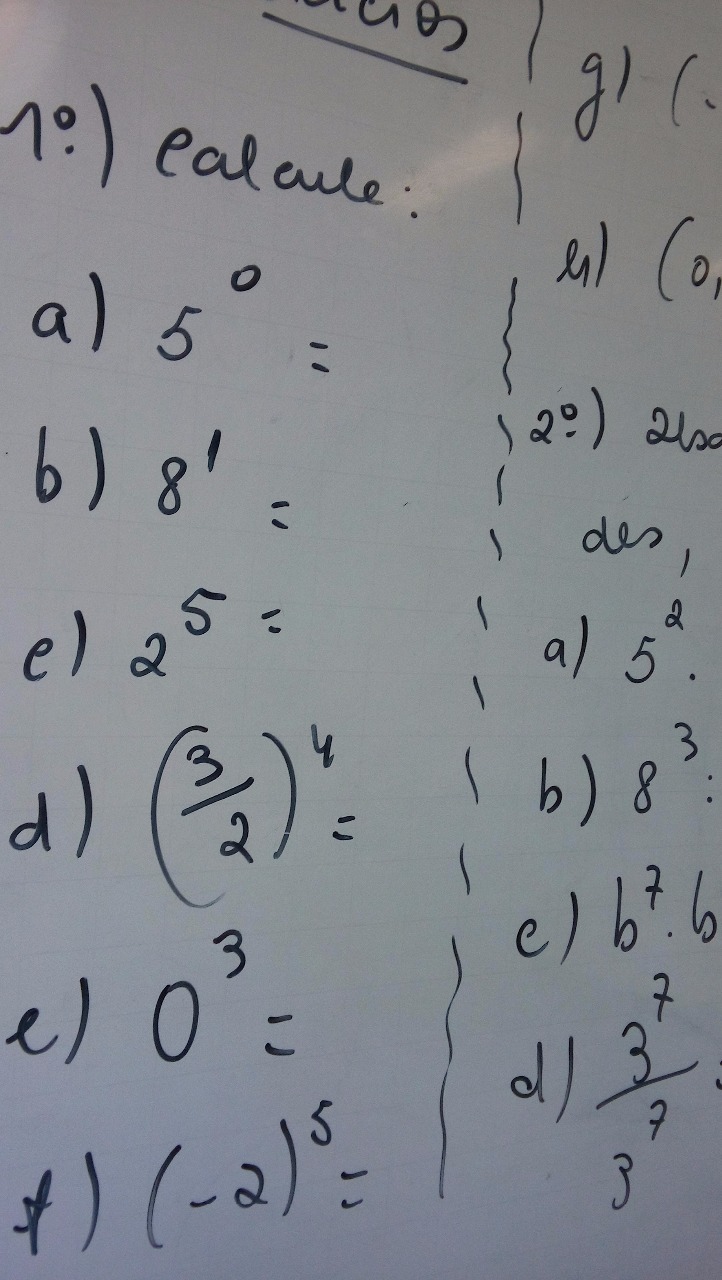 1º) Calcule:
a) 5⁰ =
b) 8¹ =
c) 2⁵ =
d) (3/2)⁴ =
e) 0³ =
f) (-2)⁵ =
g) (
h) (0,
2º)
des,
a) 5² .
b) 8³ :
c) b⁷ . b
d) 3⁷/3⁷